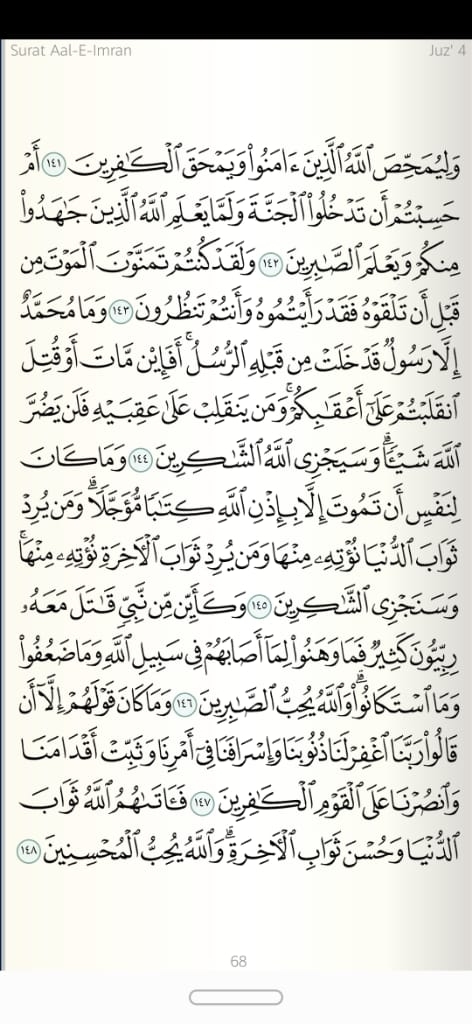 Surat Aal-E-Imran
Juz' 4
وَلِيُمَحِّصَ ٱللَّهُ ٱلَّذِينَ ءَامَنُوا۟ وَيَمْحَقَ ٱلْكَٰفِرِينَ ١٤١ أَمْ
حَسِبْتُمْ أَن تَدْخُلُوا۟ ٱلْجَنَّةَ وَلَمَّا يَعْلَمِ ٱللَّهُ ٱلَّذِينَ جَٰهَدُوا۟
مِنكُمْ وَيَعْلَمَ ٱلصَّٰبِرِينَ ١٤٢ وَلَقَدْ كُنتُمْ تَمَنَّوْنَ ٱلْمَوْتَ مِن
قَبْلِ أَن تَلْقَوْهُ فَقَدْ رَأَيْتُمُوهُ وَأَنتُمْ تَنظُرُونَ ١٤٣ وَمَا مُحَمَّدٌ
إِلَّا رَسُولٌ قَدْ خَلَتْ مِن قَبْلِهِ ٱلرُّسُلُ ۚ أَفَإِي۟ن مَّاتَ أَوْ قُتِلَ
ٱنقَلَبْتُمْ عَلَىٰٓ أَعْقَٰبِكُمْ ۚ وَمَن يَنقَلِبْ عَلَىٰ عَقِبَيْهِ فَلَن يَضُرَّ
ٱللَّهَ شَيْـًٔا ۗ وَسَيَجْزِى ٱللَّهُ ٱلشَّٰكِرِينَ ١٤٤ وَمَا كَانَ
لِنَفْسٍ أَن تَمُوتَ إِلَّا بِإِذْنِ ٱللَّهِ كِتَٰبًا مُّؤَجَّلًا ۗ وَمَن يُرِدْ
ثَوَابَ ٱلدُّنْيَا نُؤْتِهِۦ مِنْهَا وَمَن يُرِدْ ثَوَابَ ٱلْءَاخِرَةِ نُؤْتِهِۦ مِنْهَا ۚ
وَسَنَجْزِى ٱلشَّٰكِرِينَ ١٤٥ وَكَأَيِّن مِّن نَّبِىٍّ قَٰتَلَ مَعَهُۥ
رِبِّيُّونَ كَثِيرٌ فَمَا وَهَنُوا۟ لِمَآ أَصَابَهُمْ فِى سَبِيلِ ٱللَّهِ وَمَا ضَعُفُوا۟
وَمَا ٱسْتَكَانُوا۟ ۗ وَٱللَّهُ يُحِبُّ ٱلصَّٰبِرِينَ ١٤٦ وَمَا كَانَ قَوْلَهُمْ إِلَّآ أَن
قَالُوا۟ رَبَّنَا ٱغْفِرْ لَنَا ذُنُوبَنَا وَإِسْرَافَنَا فِىٓ أَمْرِنَا وَثَبِّتْ أَقْدَامَنَا
وَٱنصُرْنَا عَلَى ٱلْقَوْمِ ٱلْكَٰفِرِينَ ١٤٧ فَـَٔاتَىٰهُمُ ٱللَّهُ ثَوَابَ
ٱلدُّنْيَا وَحُسْنَ ثَوَابِ ٱلْءَاخِرَةِ ۗ وَٱللَّهُ يُحِبُّ ٱلْمُحْسِنِينَ ١٤٨
68